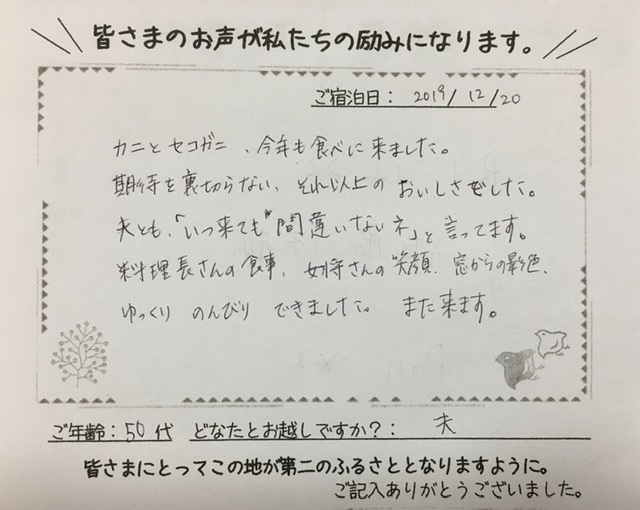 皆さまのお声が私たちの励みになります。
ご宿泊日: 2019/12/20
カニとセコガニ、今年も食べに来ました。
期待を裏切らない、それ以上のおいしさでした。
夫とも、「いつ来ても"間違いないネ」と言ってます。
料理長さんの食事、女将さんの笑顔、窓からの景色、
ゆっくり のんびり できました。 また来ます。
ご年齢: 50代 どなたとお越しですか?: 夫
皆さまにとってこの地が第二のふるさととなりますように。
ご記入ありがとうございました。